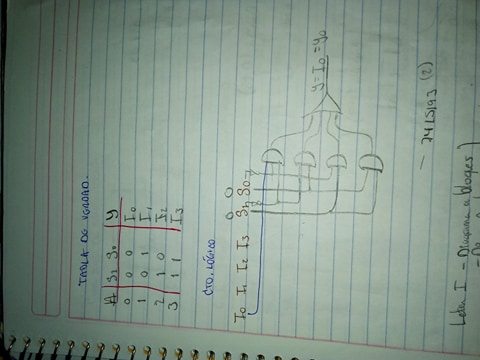 TABLA DE VERDAD.
A S1 S0 Y
0 0 0 I0
1 0 1 I1
2 1 0 I2
3 1 1 I3
CTO. LÓGICO
0 0
I0 I1 I2 I3 S1 S0
Y = I0 = Y0
- 74LS193 (2)
I - Diagrama a bloques